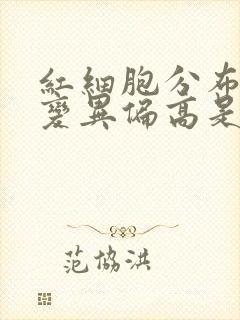 紅細胞分布
變異偏高是
范協洪